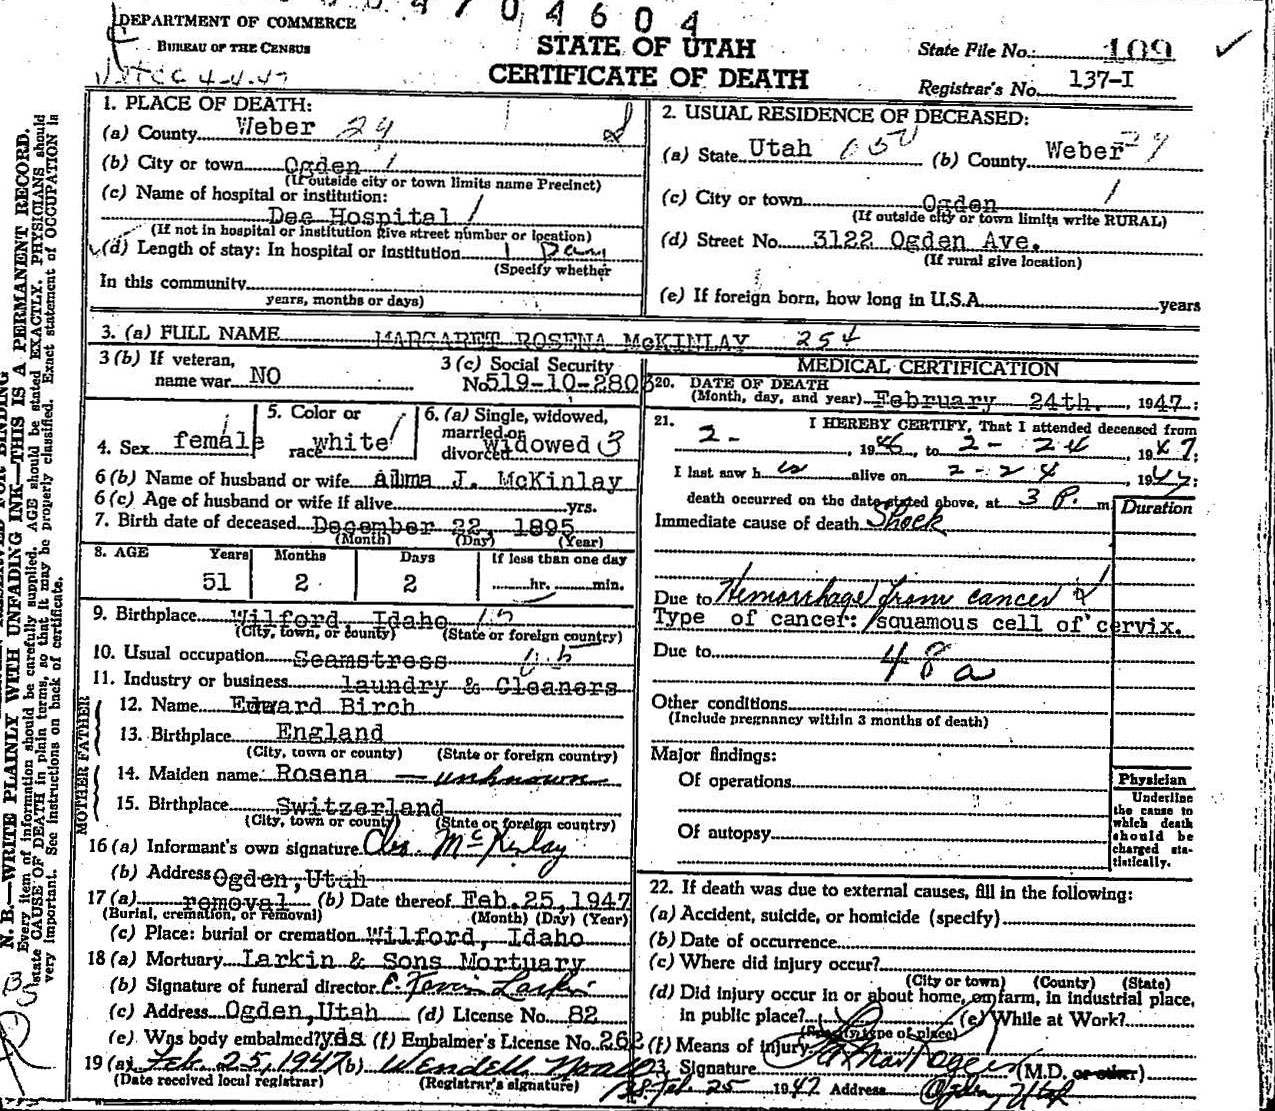 DEPARTMENT OF COMMERCE
BUREAU OF THE CENSUS
4704604
STATE OF UTAH
CERTIFICATE OF DEATH
State File No. 109
Registrar's No. 137-I
N. B.—WRITE PLAINLY WITH UNFADING INK—THIS IS A PERMANENT RECORD.
Every item of information should be carefully supplied. AGE should be stated EXACTLY. PHYSICIANS should
state CAUSE OF DEATH in plain terms, so that it may be properly classified. Exact statement of OCCUPATION is
very important. See instructions on back of certificate.
1. PLACE OF DEATH:
(a) County Weber 29
(b) City or town Ogden
(If outside city or town limits name Precinct)
(c) Name of hospital or institution:
Dee Hospital
(If not in hospital or institution give street number or location)
(d) Length of stay: In hospital or institution 1 Day
(Specify whether
In this community
years, months or days)
2. USUAL RESIDENCE OF DECEASED:
(a) State Utah (b) County Weber 29
(c) City or town Ogden
(If outside city or town limits write RURAL)
(d) Street No. 3122 Ogden Ave.
(If rural give location)
(e) If foreign born, how long in U.S.A. years
3. (a) FULL NAME MARGARET ROSENA McKINLAY 254
3 (b) If veteran,
name war NO
3 (c) Social Security
No. 519-10-2803
4. Sex female
5. Color or
race white
6. (a) Single, widowed,
married or
divorced widowed 3
6 (b) Name of husband or wife Alma J. McKinlay
6 (c) Age of husband or wife if alive yrs.
7. Birth date of deceased December 22, 1895
(Month) (Day) (Year)
8. AGE Years Months Days If less than one day
51 2 2 hr. min.
9. Birthplace Wilford, Idaho
(City, town, or county) (State or foreign country)
10. Usual occupation Seamstress
11. Industry or business laundry & Cleaners
FATHER
12. Name Edward Birch
13. Birthplace England
(City, town or county) (State or foreign country)
MOTHER
14. Maiden name Rosena — unknown
15. Birthplace Switzerland
(City, town or county) (State or foreign country)
16 (a) Informant's own signature McKinlay
(b) Address Ogden, Utah
17 (a) removal (b) Date thereof Feb. 25, 1947
(Burial, cremation, or removal) (Month) (Day) (Year)
(c) Place: burial or cremation Wilford, Idaho
18 (a) Mortuary Larkin & Sons Mortuary
(b) Signature of funeral director Larkin
(c) Address Ogden, Utah (d) License No. 82
(e) Was body embalmed? yes (f) Embalmer's License No. 262
19 (a) Feb. 25, 1947 (b) Wendell
(Date received local registrar) (Registrar's signature)
MEDICAL CERTIFICATION
20. DATE OF DEATH
(Month, day, and year) February 24th. , 1947 ;
21. I HEREBY CERTIFY, That I attended deceased from
2- , 1946, to 2-24 , 1947;
I last saw h alive on 2-24 1947;
death occurred on the date stated above, at 3 P. m. Duration
Immediate cause of death Shock
Due to Hemorrhage from cancer
Type of cancer: squamous cell of cervix.
Due to
48a
Other conditions
(Include pregnancy within 3 months of death)
Major findings:
Of operations
Of autopsy
Physician
Underline
the cause to
which death
should be
charged sta-
tistically.
22. If death was due to external causes, fill in the following:
(a) Accident, suicide, or homicide (specify)
(b) Date of occurrence
(c) Where did injury occur?
(City or town) (County) (State)
(d) Did injury occur in or about home, on farm, in industrial place,
in public place? (e) While at Work?
(Specify type of place)
(f) Means of injury
23. Signature (M.D. or other)
Feb. 25 1947 Address Ogden, Utah